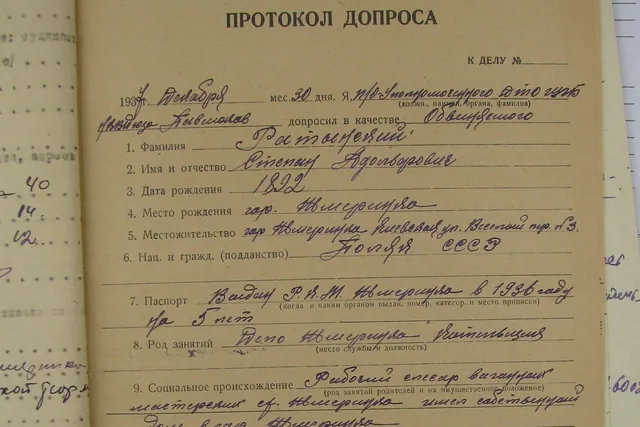 ПРОТОКОЛ ДОПРОСА
К ДЕЛУ №
1937 г. Декабря мес. 30 дня. Я,
(должн., наимен. органа, фамилия)
допросил в качестве Обвиняемого
1. Фамилия Ратынский
2. Имя и отчество Степан Адольфович
3. Дата рождения 1892
4. Место рождения гор. Жмеринка
5. Местожительство гор. Жмеринка Киевская ул. Веселый пер. №3.
6. Нац. и гражд. (подданство) Поляк СССР
7. Паспорт Выдан Р.К.М. Жмеринка в 1936 году
(когда и каким органом выдан, номер, категор. и место прописки)
на 5 лет
8. Род занятий Депо Жмеринка
(место службы и должность)
9. Социальное происхождение Рабочий слесар вагонних
(род занятий родителей и их имущественное положение)
мастерских ст. Жмеринка имел
дом в гор. Жмеринка
40
14.
12